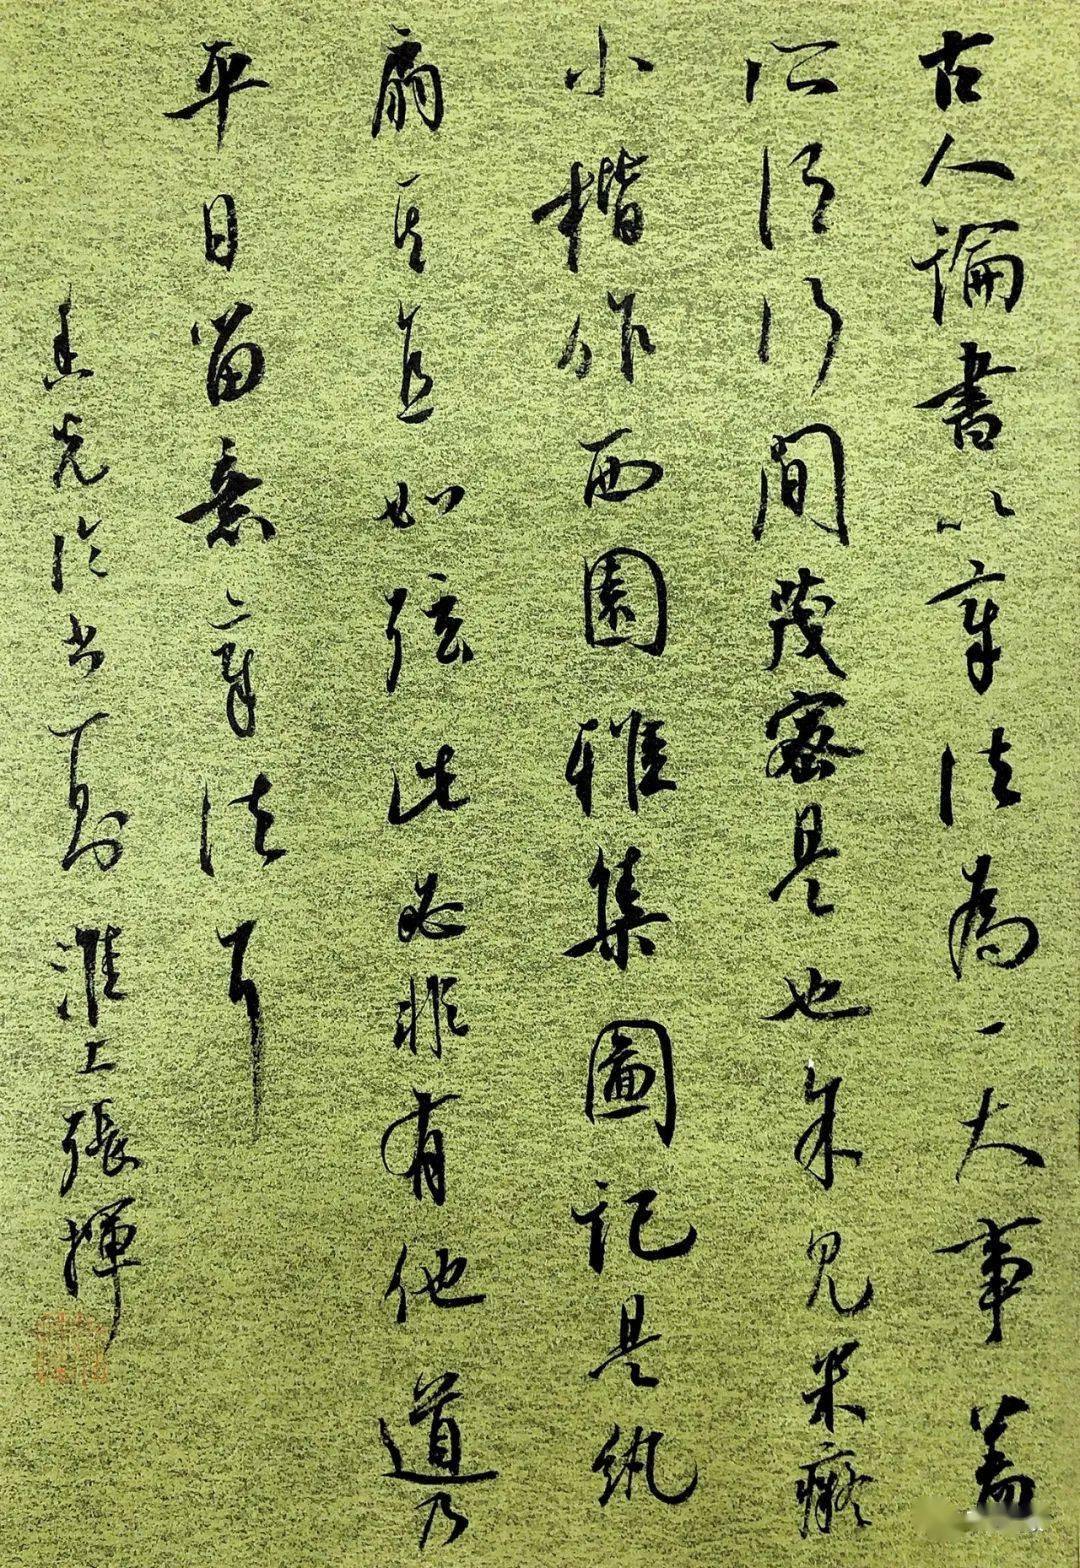 古人論書以章法為一大事蓋
所謂行間茂密是也余見米癡
小楷作西園雅集圖記是紈
扇其直如弦此必非有他道乃
平日留意章法耳
香光論書一則淮上張輝